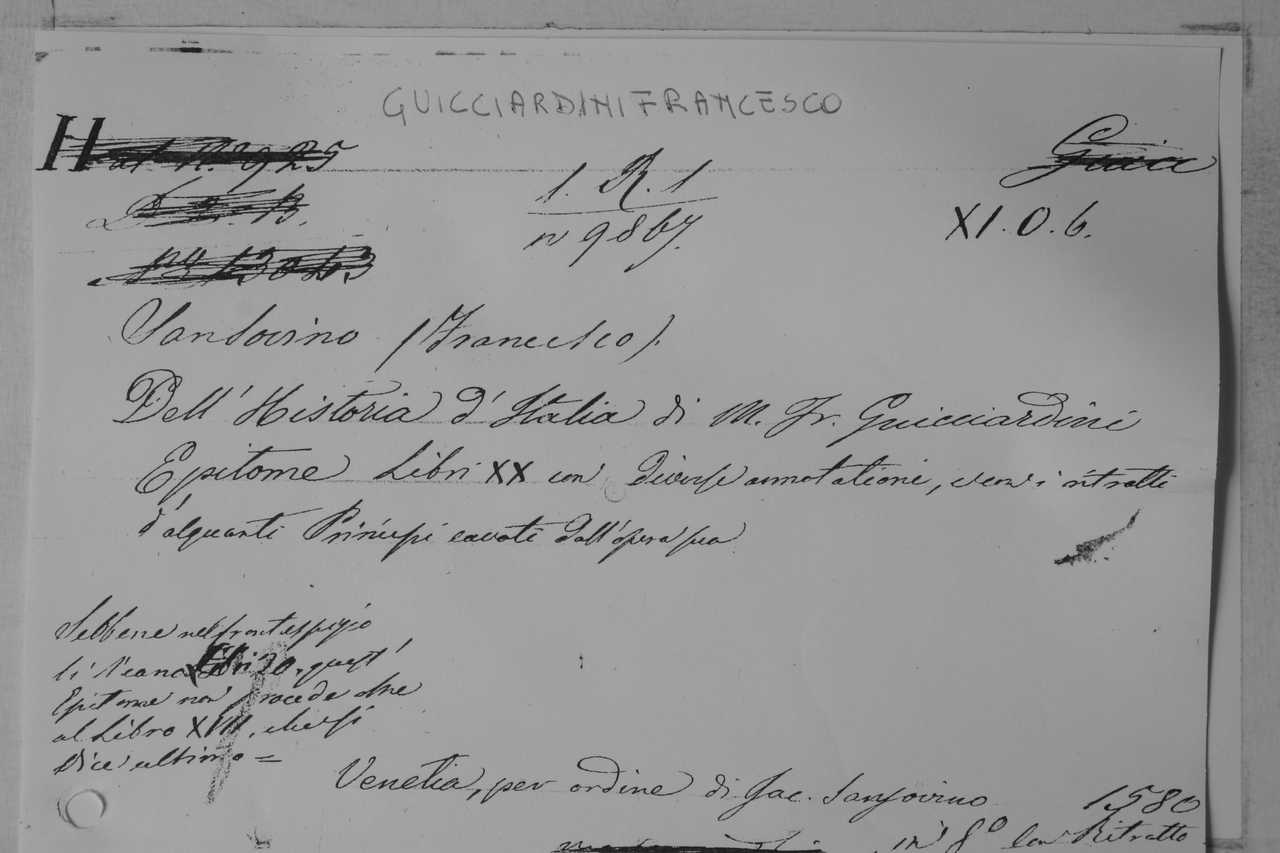 GUICCIARDINI FRANCESCO
H
1. R. 1
n 9867.
Guicc
XI. O. 6.
Sansovino (Francesco).
Dell' Historia d'Italia di M. Fr. Guicciardini
Epitome Libri XX con diverse annotationi, con i ritratti
d'alquanti Principi cavati dall'opera sua
Sebbene nel frontespizio
Libri 20, quest'
Epitome non procede che
al Libro XVIII, che si
dice ultimo =
Venetia, per ordine di Jac. Sansovino 1580
in 8º con Ritratto